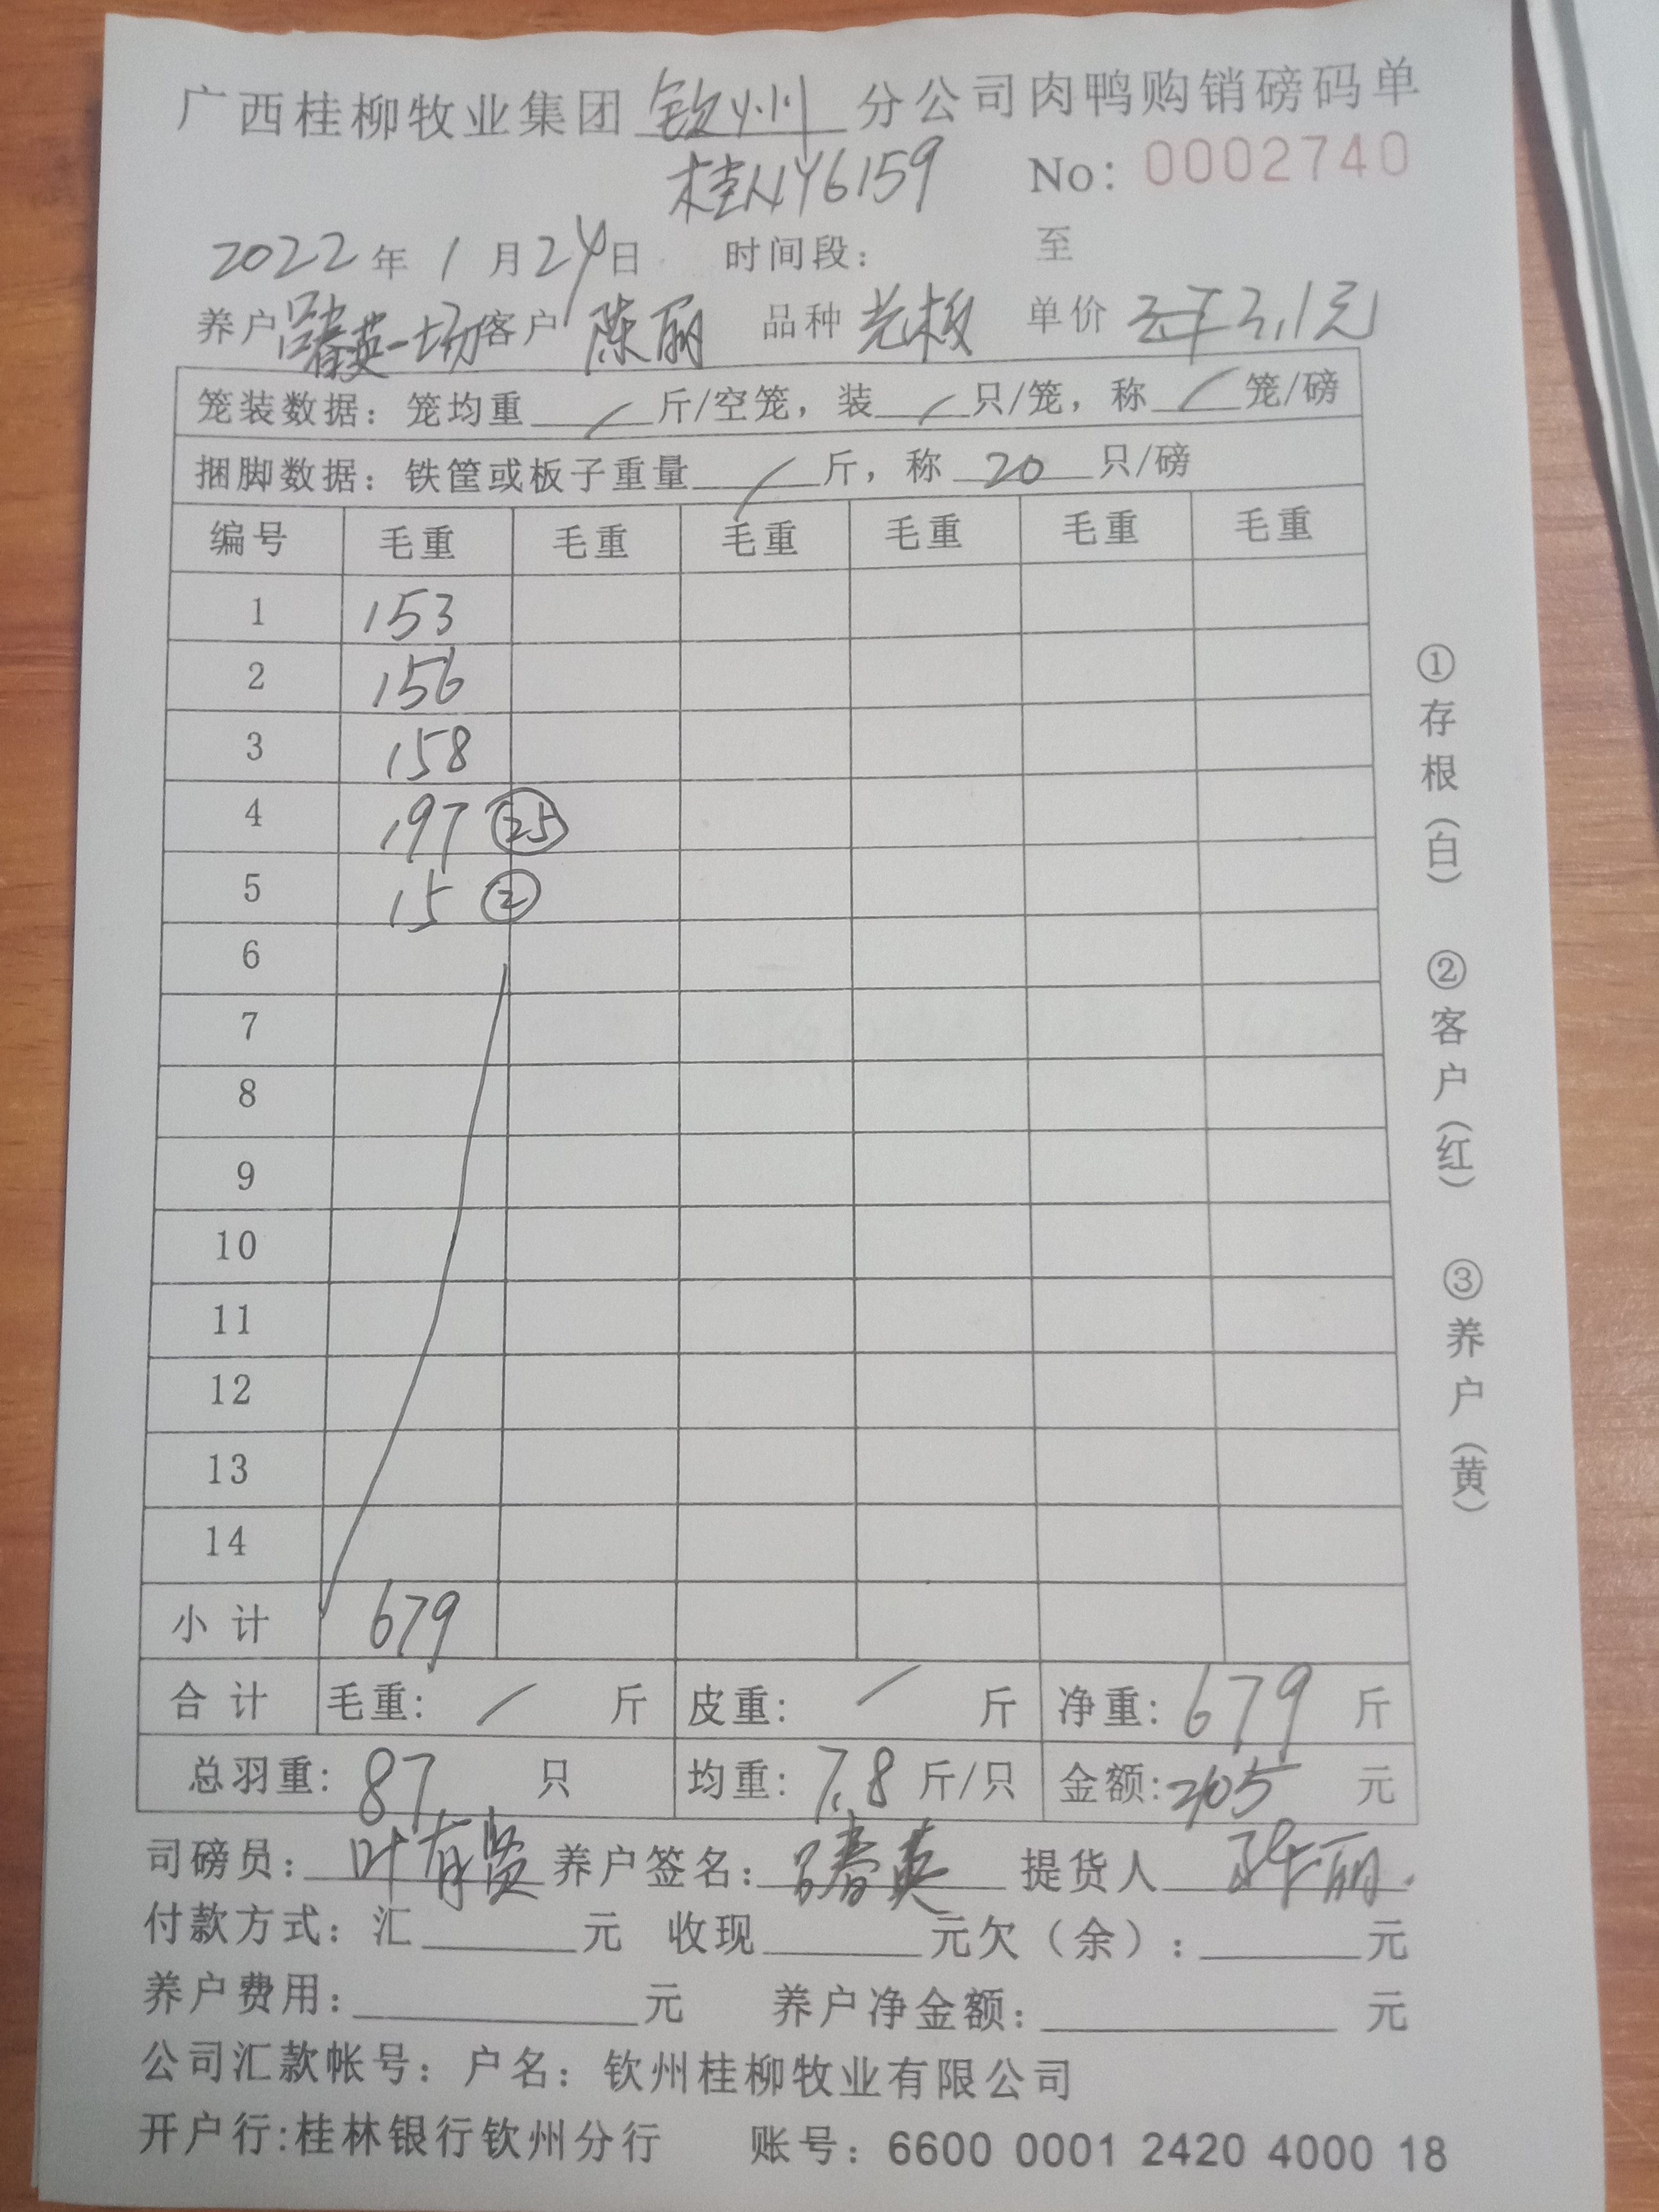 广西桂柳牧业集团 钦州 分公司肉鸭购销磅码单
桂NY6159 No: 0002740
2022 年 1 月 24 日 时间段： 至
养户 吕春英一场 客户 陈丽 品种 光板 单价 3.1元
笼装数据：笼均重 / 斤/空笼，装 / 只/笼，称 / 笼/磅
捆脚数据：铁筐或板子重量 / 斤，称 20 只/磅
编号 毛重 毛重 毛重 毛重 毛重 毛重
1 153
2 156
3 158
4 197 (25)
5 15 (2)
6
7
8
9
10
11
12
13
14
小计 679
合计 毛重: / 斤 皮重: / 斤 净重: 679 斤
总羽重: 87 只 均重: 7.8 斤/只 金额: 2105 元
司磅员: 叶有贤 养户签名: 吕春英 提货人 陈丽
付款方式：汇 元 收现 元欠（余）: 元
养户费用: 元 养户净金额: 元
公司汇款帐号：户名：钦州桂柳牧业有限公司
开户行:桂林银行钦州分行 账号：6600 0001 2420 4000 18
①存根（白） ②客户（红） ③养户（黄）